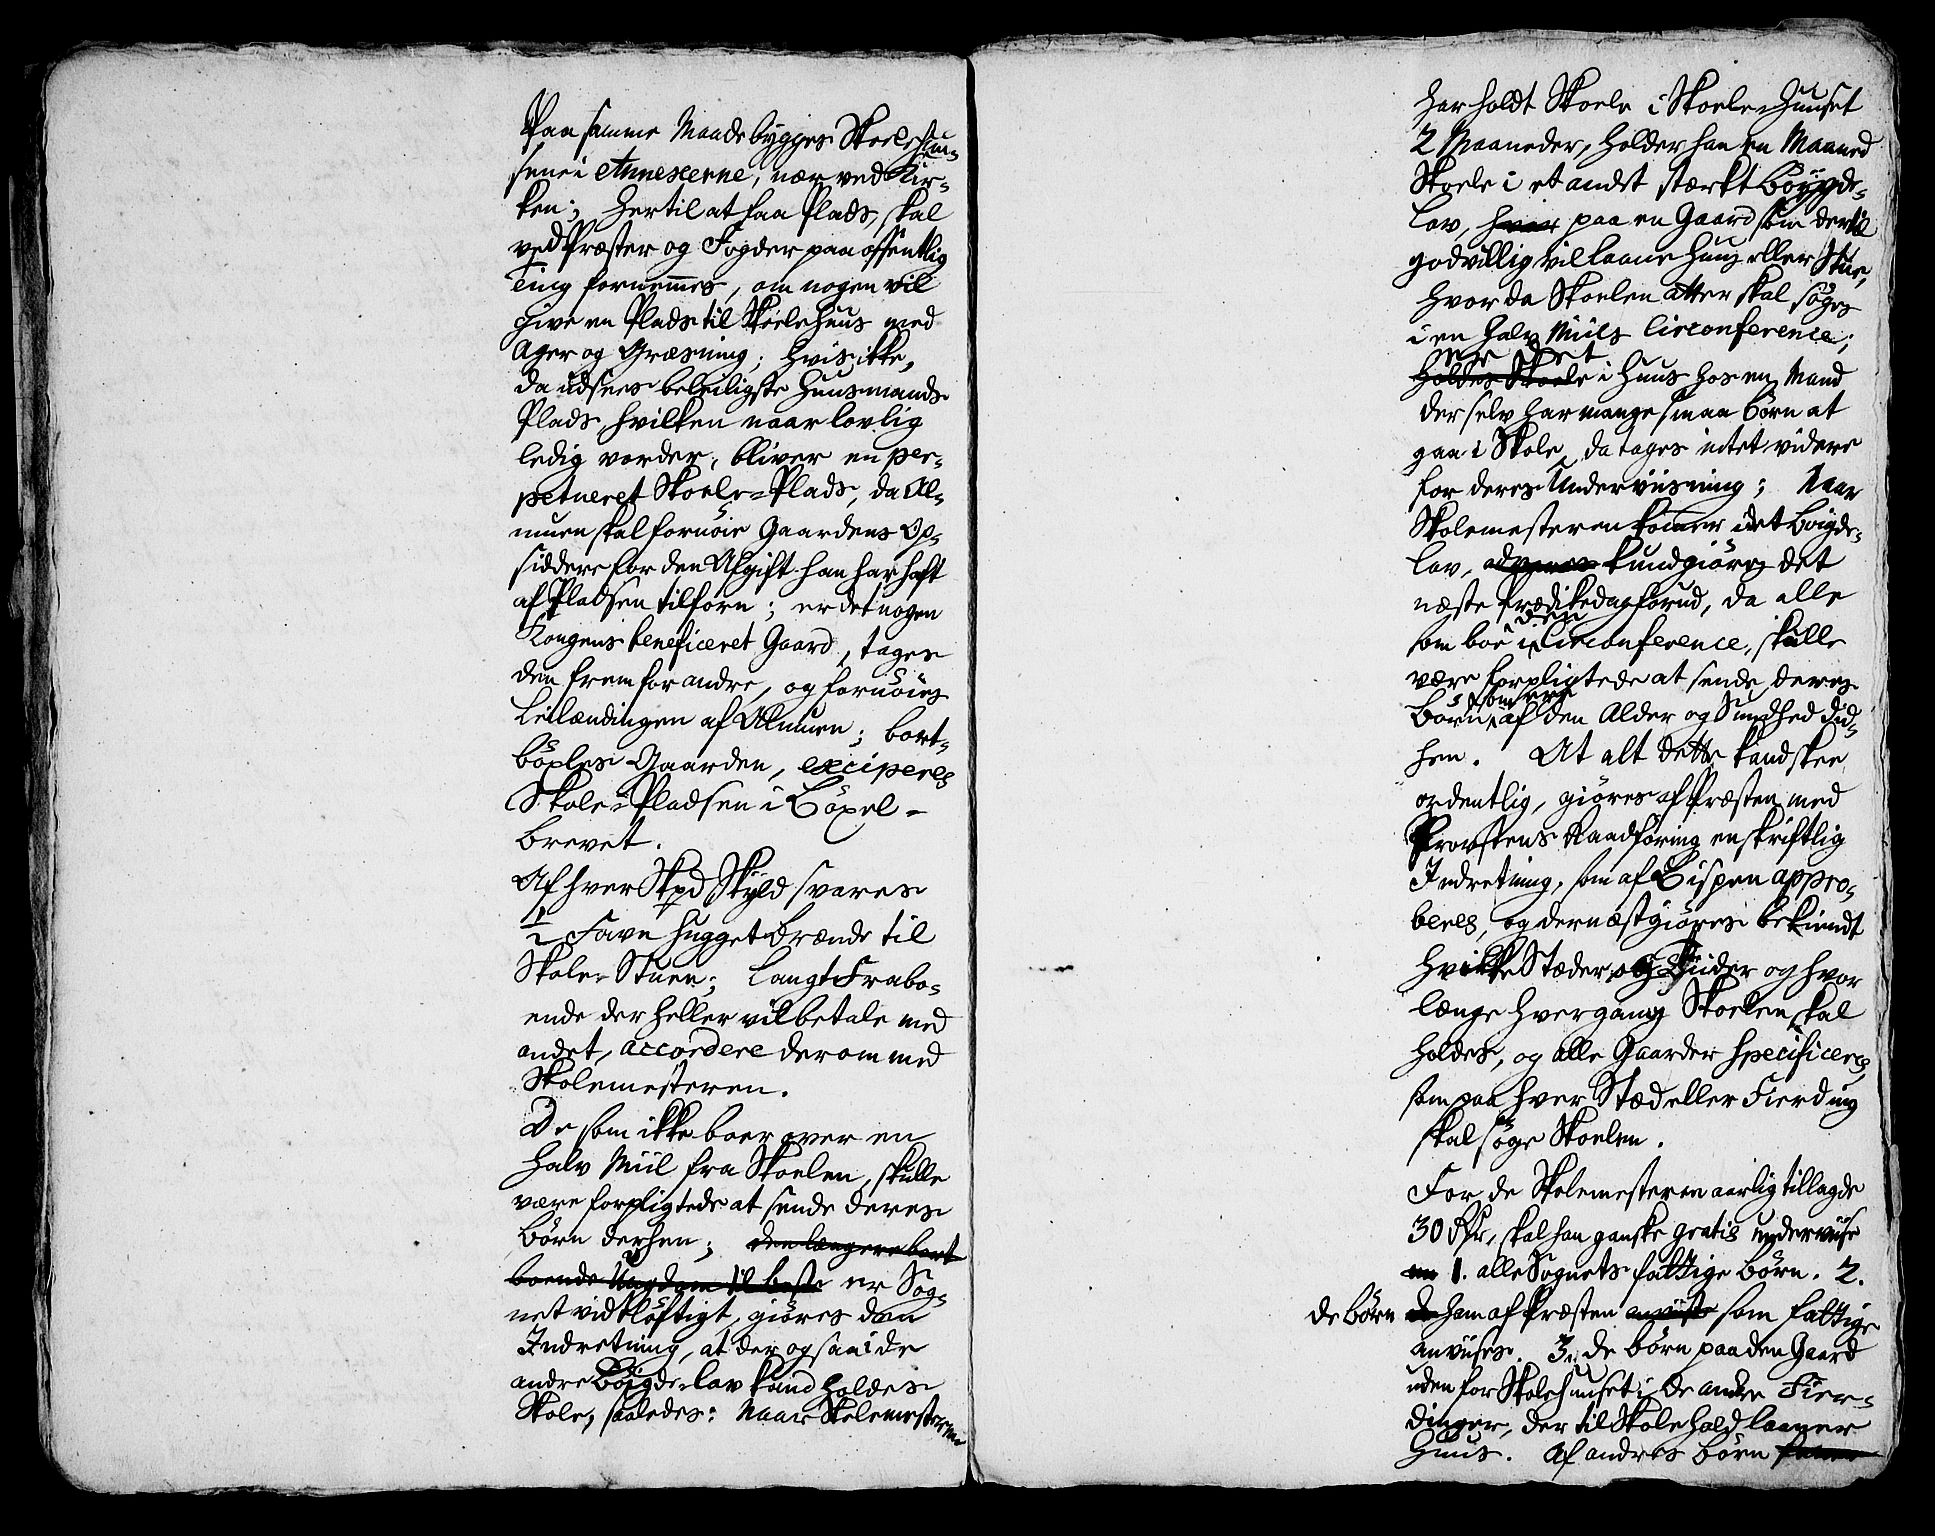 Paa samme Maade bygges Skoelehuu-
sene i Annexerne, nær ved Kir-
ken; Hertil at faa Plads, skal
ved Præster og Fogder paa offentlig
Ting fornemmes, om nogen vil
give en Plads til Skoelehuus med
Ager og Græsning; hvis ikke,
da udsees beleiligste Huusmands
Plads, hvilken naar lovlig
ledig vorder, bliver en per-
petueret Skoele-Plads, da Al-
muen skal fornøie Gaardens Op-
siddere for den Afgift han har haft
af Pladsen tilforn; er det nogen
Kongens beneficeret Gaard, tages
den frem for andre, og fornøies
Leilændingen af Almuen; bort-
böxles Gaarden, exciperes
Skole-Pladsen i Böxel-
brevet.
Af hver Skpd Skyld svares
1/2 Favn hugget Brænde til
Skole-Stuen; Langt Frabo-
ende der heller vil betale med
andet, accordere derom med
Skolemesteren.
De som ikke boer over en
halv Miil fra Skoelen, skulle
være forpligtede at sende deres
Börn derhen; den længere bort
boende Ungdom til beste er Sog-
net vidtløftigt, giøres den
Indretning, at der ogsaa i de
andre Böigde-lav kand holdes
Skole, saaledes: Naar Skolemesteren
har holdt Skoele i Skoele-huuset
2 Maaneder, holder han en Maaned
Skoele i et andet stærkt Böygde-
lav, paa en Gaard som dertil
godvillig vil laane Huus eller Stue,
hvor da Skoelen atter skal söges
i en halv Miils Circonference;
er det
holdes Skoele i Huus hos en Mand
der selv har mange smaa Börn at
gaa i Skole, da tages intet videre
for deres Underviisning; Naar
Skolemesteren kommer i det Böigde-
lav, kundgiøres det
næste Prædikedag forud, da alle
som boe i den Circonference, skulle
være forpligtede at sende deres
Börn som ere af den Alder og Sundhed did-
hen. At alt dette kand skee
ordentlig, giøres af Præsten med
Provstens Raadföring en skriftlig
Indretning, som af Bispen appro-
beres, og dernæst giøres bekiendt
hvilke Stæder og Tiider og hvor
længe hver gang Skoelen skal
holdes, og alle Gaarder specificeres,
som paa hver Stæd eller Fierding
skal söge Skoelen.
For de Skolemesteren aarlig tillagde
30 Rdr, skal han ganske gratis underviise
1. alle Sognets fattige Börn. 2.
de Börn ham af Præsten anviiste som fattige
anviises. 3. de Börn paa den Gaard
uden for Skolehuuset i de andre Fier-
dinger, der til Skolehold laaner
Huus. Af andres Börn